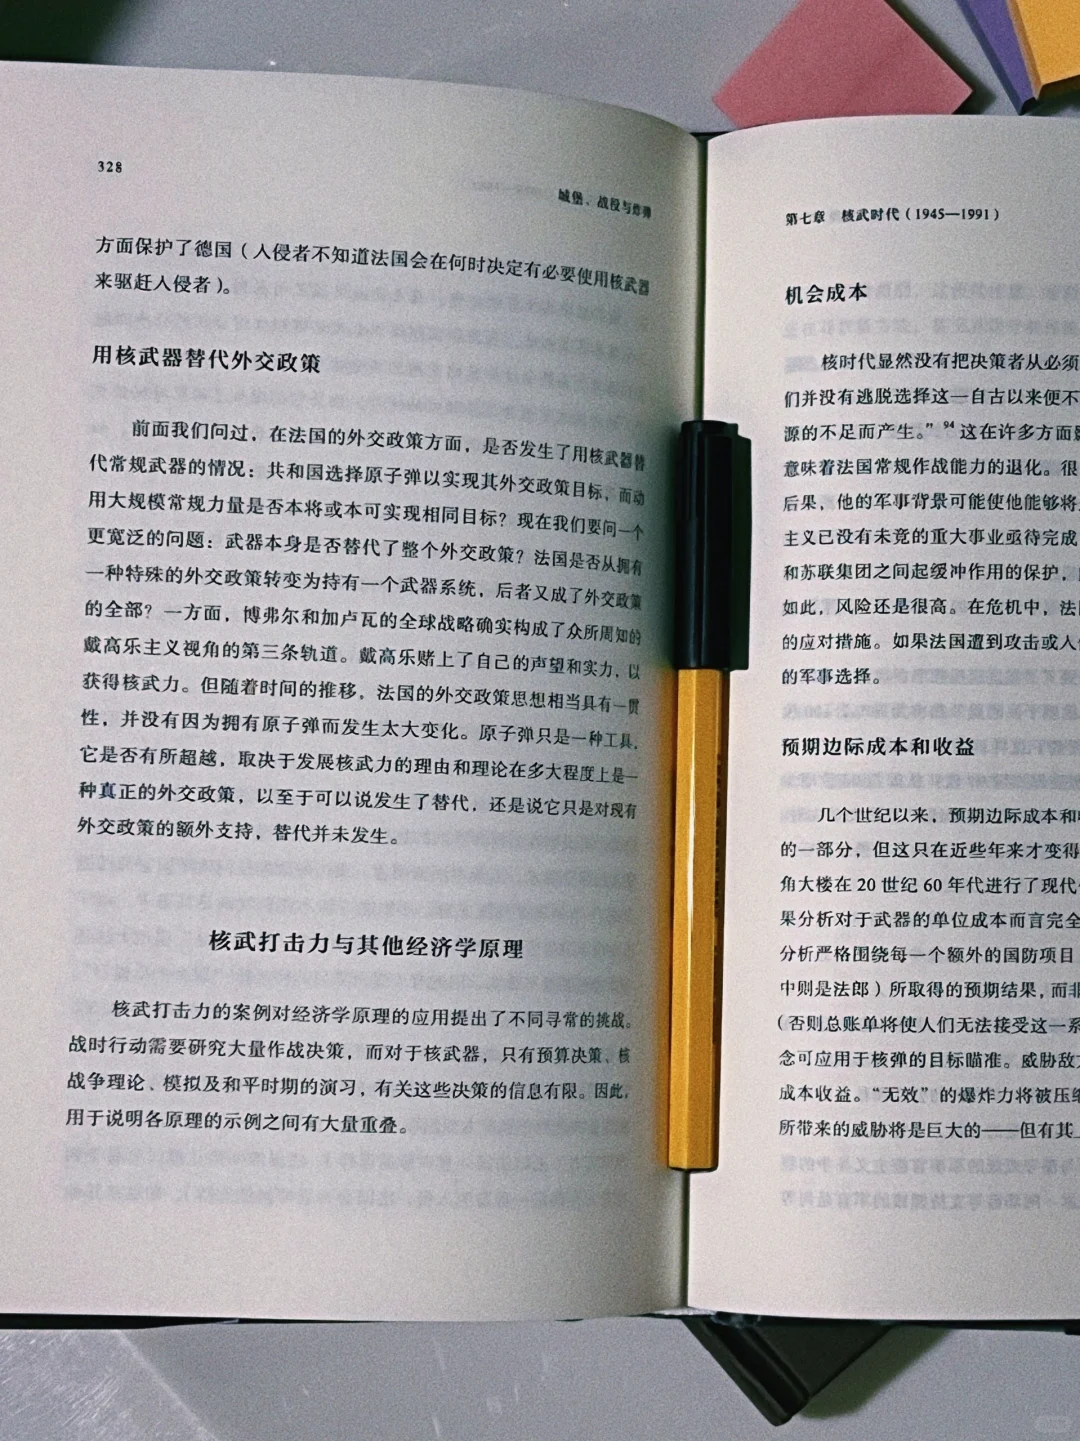 328
城堡、战役与炸弹
方面保护了德国（人侵者不知道法国会在何时决定有必要使用核武器
来驱赶人侵者）。
用核武器替代外交政策
前面我们问过，在法国的外交政策方面，是否发生了用核武器替
代常规武器的情况：共和国选择原子弹以实现其外交政策目标，而动
用大规模常规力量是否本将或本可实现相同目标？现在我们要问一个
更宽泛的问题：武器本身是否替代了整个外交政策？法国是否从拥有
一种特殊的外交政策转变为持有一个武器系统，后者又成了外交政策
的全部？一方面，博弗尔和加卢瓦的全球战略确实构成了众所周知的
戴高乐主义视角的第三条轨道。戴高乐赌上了自己的声望和实力，以
获得核武力。但随着时间的推移，法国的外交政策思想相当具有一贯
性，并没有因为拥有原子弹而发生太大变化。原子弹只是一种工具，
它是否有所超越，取决于发展核武力的理由和理论在多大程度上是一
种真正的外交政策，以至于可以说发生了替代，还是说它只是对现有
外交政策的额外支持，替代并未发生。
核武打击力与其他经济学原理
核武打击力的案例对经济学原理的应用提出了不同寻常的挑战。
战时行动需要研究大量作战决策，而对于核武器，只有预算决策、核
战争理论、模拟及和平时期的演习，有关这些决策的信息有限。因此，
用于说明各原理的示例之间有大量重叠。
第七章 核武时代（1945—1991）
机会成本
核时代显然没有把决策者从必须
们并没有逃脱选择这一自古以来便不
源的不足而产生。”94 这在许多方面影
意味着法国常规作战能力的退化。很
后果，他的军事背景可能使他能够将
主义已没有未竟的重大事业亟待完成
和苏联集团之间起缓冲作用的保护，
如此，风险还是很高。在危机中，法
的应对措施。如果法国遭到攻击或人
的军事选择。
预期边际成本和收益
几个世纪以来，预期边际成本和
的一部分，但这只在近些年来才变得
角大楼在 20 世纪 60 年代进行了现代
果分析对于武器的单位成本而言完全
分析严格围绕每一个额外的国防项目
中则是法郎）所取得的预期结果，而非
（否则总账单将使人们无法接受这一系
念可应用于核弹的目标瞄准。威胁敌
成本收益。“无效”的爆炸力将被压缩
所带来的威胁将是巨大的——但有其